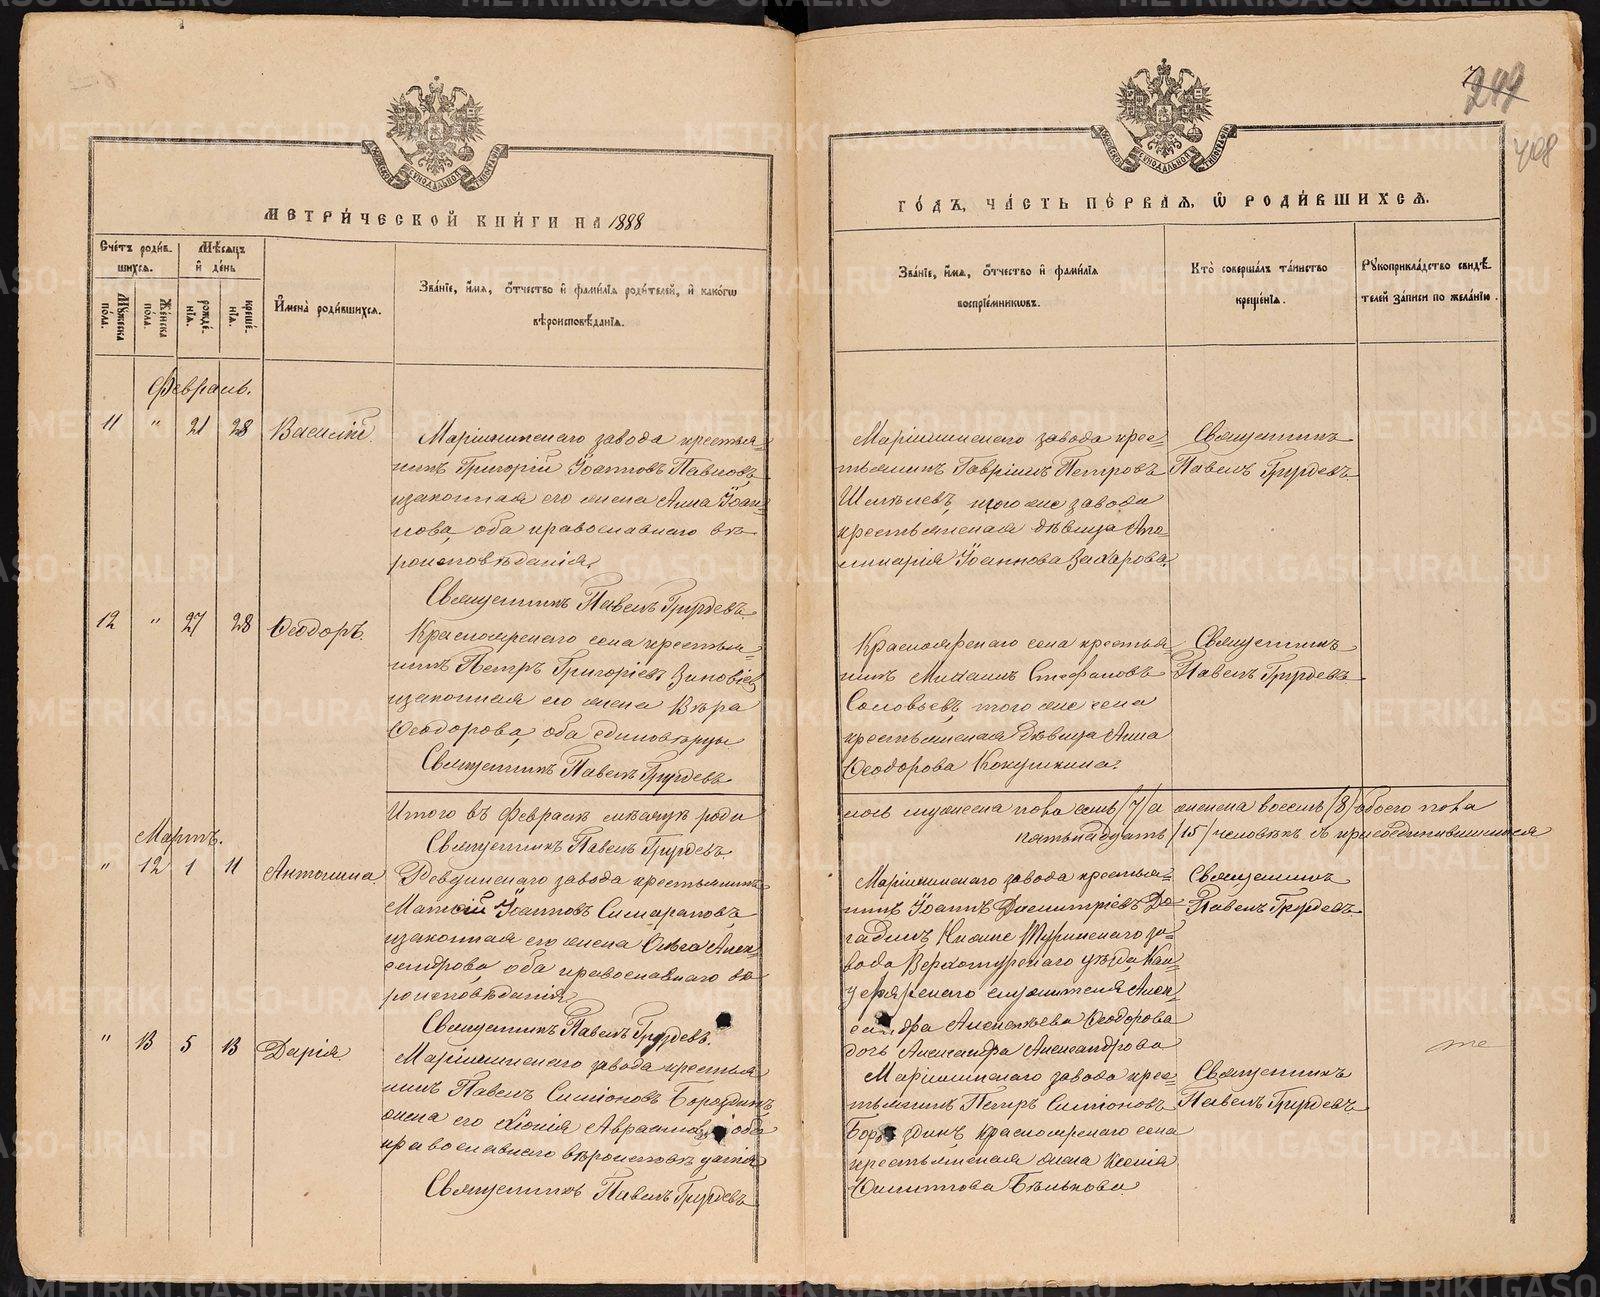 МЕТРИ́ЧЕСКОЙ КНИ́ГИ НА 1888
Сче́тъ роди́в-
шихся.
Мѣ́сяцъ
и҆ де́нь
Мꙋжеска
по́ла.
Же́нска
по́ла.
рожде́-
нїѧ.
креще́-
нїѧ.
И҆мена̀ роди́вшихсѧ.
Зва́нїе, и҆́мѧ, ѻ҆́тчество и҆ фамилїѧ роди́телей, и҆ како́гѡ
вѣроисповѣ́данїѧ.
Февраль.
11 " 21 28 Василій.
Маріинскаго завода крестья-
нинъ Григорій Іоанновъ Павловъ,
и законная его жена Анна Іоан-
нова, оба православнаго вѣ-
роисповѣданія.
Священникъ Павелъ Груздевъ.
12 " 27 28 Ѳеодоръ.
Красноярскаго села крестья-
нинъ Петръ Григоріевъ Зиновіев
и законная его жена Вѣра
Ѳеодорова, оба единовѣрцы
Священникъ Павелъ Груздевъ
Итого въ Февралѣ мѣсяцѣ роди
Священникъ Павелъ Груздевъ.
Мартъ.
" 12 1 11 Антонина.
Ревдинскаго завода крестьянинъ
Матѳій Іоанновъ
и законная его жена Ольга Алек-
сандрова, оба православнаго вѣ-
роисповѣданія
Священникъ Павелъ Груздевъ.
" 13 5 13 Дарія
Маріинскаго завода крестья
нинъ Павелъ Симіоновъ Бороздинъ
жена его Хіонія Авраамова, оба
православнаго вѣроисповѣданія
Священникъ Павелъ Груздевъ
ГО́ДЪ, ЧА́СТЬ ПЕ́РВАѦ, Ѽ РОДИ́ВШИХСѦ.
7
408
Зва́нїе, и҆́мѧ, ѻ҆́тчество и҆ фами́лїѧ
воспрїе́мниковъ.
Кто̀ соверша́лъ та́инство
креще́нїѧ.
Рꙋкоприкла́дство свидѣ́-
телей за́писи по жела́нїю.
Маріинскаго завода крес-
тьянинъ Гавріилъ Петровъ
того же завода
крестьянская дѣвица Апо-
линарія Іоаннова Захарова.
Священникъ
Павелъ Груздевъ.
Красноярскаго села крестья-
нинъ Михаилъ Стефановъ
Соловьевъ, того же села
крестьянская дѣвица Анна
Ѳеодорова Кокушкина.
Священникъ
Павелъ Груздевъ.
лось мужеска пола семь /7/ а женска восемь /8/ обоего пола
пятьнадцать /15/ человѣкъ
Маріинскаго завода крестья-
нинъ Іоаннъ Димитріевъ До-
гадинъ Нижне Туринскаго за-
вода Верхотурскаго уѣзда Кан-
целярскаго служителя Алек-
сандра Алексѣева Ѳеодорова
дочь Александра Александрова
Священникъ
Павелъ Груздевъ
Маріинскаго завода крес-
тьянинъ Петръ Симіоновъ
Бороздинъ Красноярскаго села
крестьянская жена Ксенія
Бѣлькова
Священникъ
Павелъ Груздевъ
METRIKI.GASO-URAL.RU